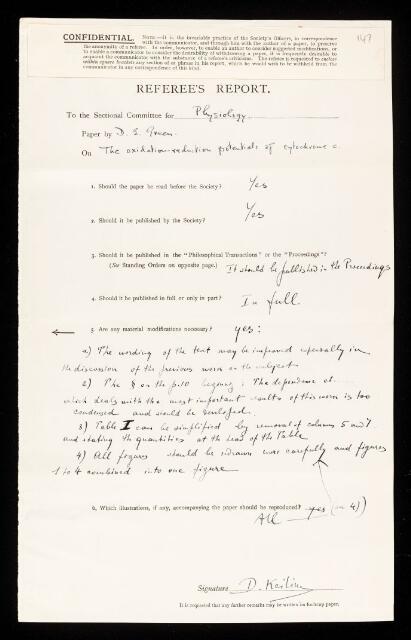 147
CONFIDENTIAL. NOTE.—It is the invariable practice of the Society's Officers, in correspondence
with the communicator, and through him with the author of a paper, to preserve
the anonymity of a referee. In order, however, to enable an author to consider suggested modifications, or
to enable the communicator to consider the desirability of withdrawing a paper, it is frequently desirable to
acquaint the communicator with the substance of a referee's criticisms. The referee is requested to enclose
within square brackets any section of or phrase in his report, which he would wish to be withheld from the
communicator in any correspondence of this kind.
REFEREE'S REPORT.
To the Sectional Committee for Physiology.
Paper by D. E. Green.
On The oxidation-reduction potentials of cytochrome c.
1. Should the paper be read before the Society? Yes
2. Should it be published by the Society? Yes
3. Should it be published in the "Philosophical Transactions" or the "Proceedings"?
(See Standing Orders on opposite page.) It should be published in the Proceedings
4. Should it be published in full or only in part? In full
5. Are any material modifications necessary? yes:
1) The wording of the text may be improved especially in
the discussion of the previous work on the subject.
2) The § on the p.10 begining: The dependence of ....
which deals with the most important results of this work is too
condensed and should be enlarged.
3) Table I can be simplified by removal of columns 5 and 7
and stating the quantities at the head of the Table
4) All figures should be redrawn more carefully and figures
1 to 4 combined into one figure
6. Which illustrations, if any, accompanying the paper should be reproduced? yes (see 4))
All
Signature D. Keilin
It is requested that any further remarks may be written on foolscap paper.